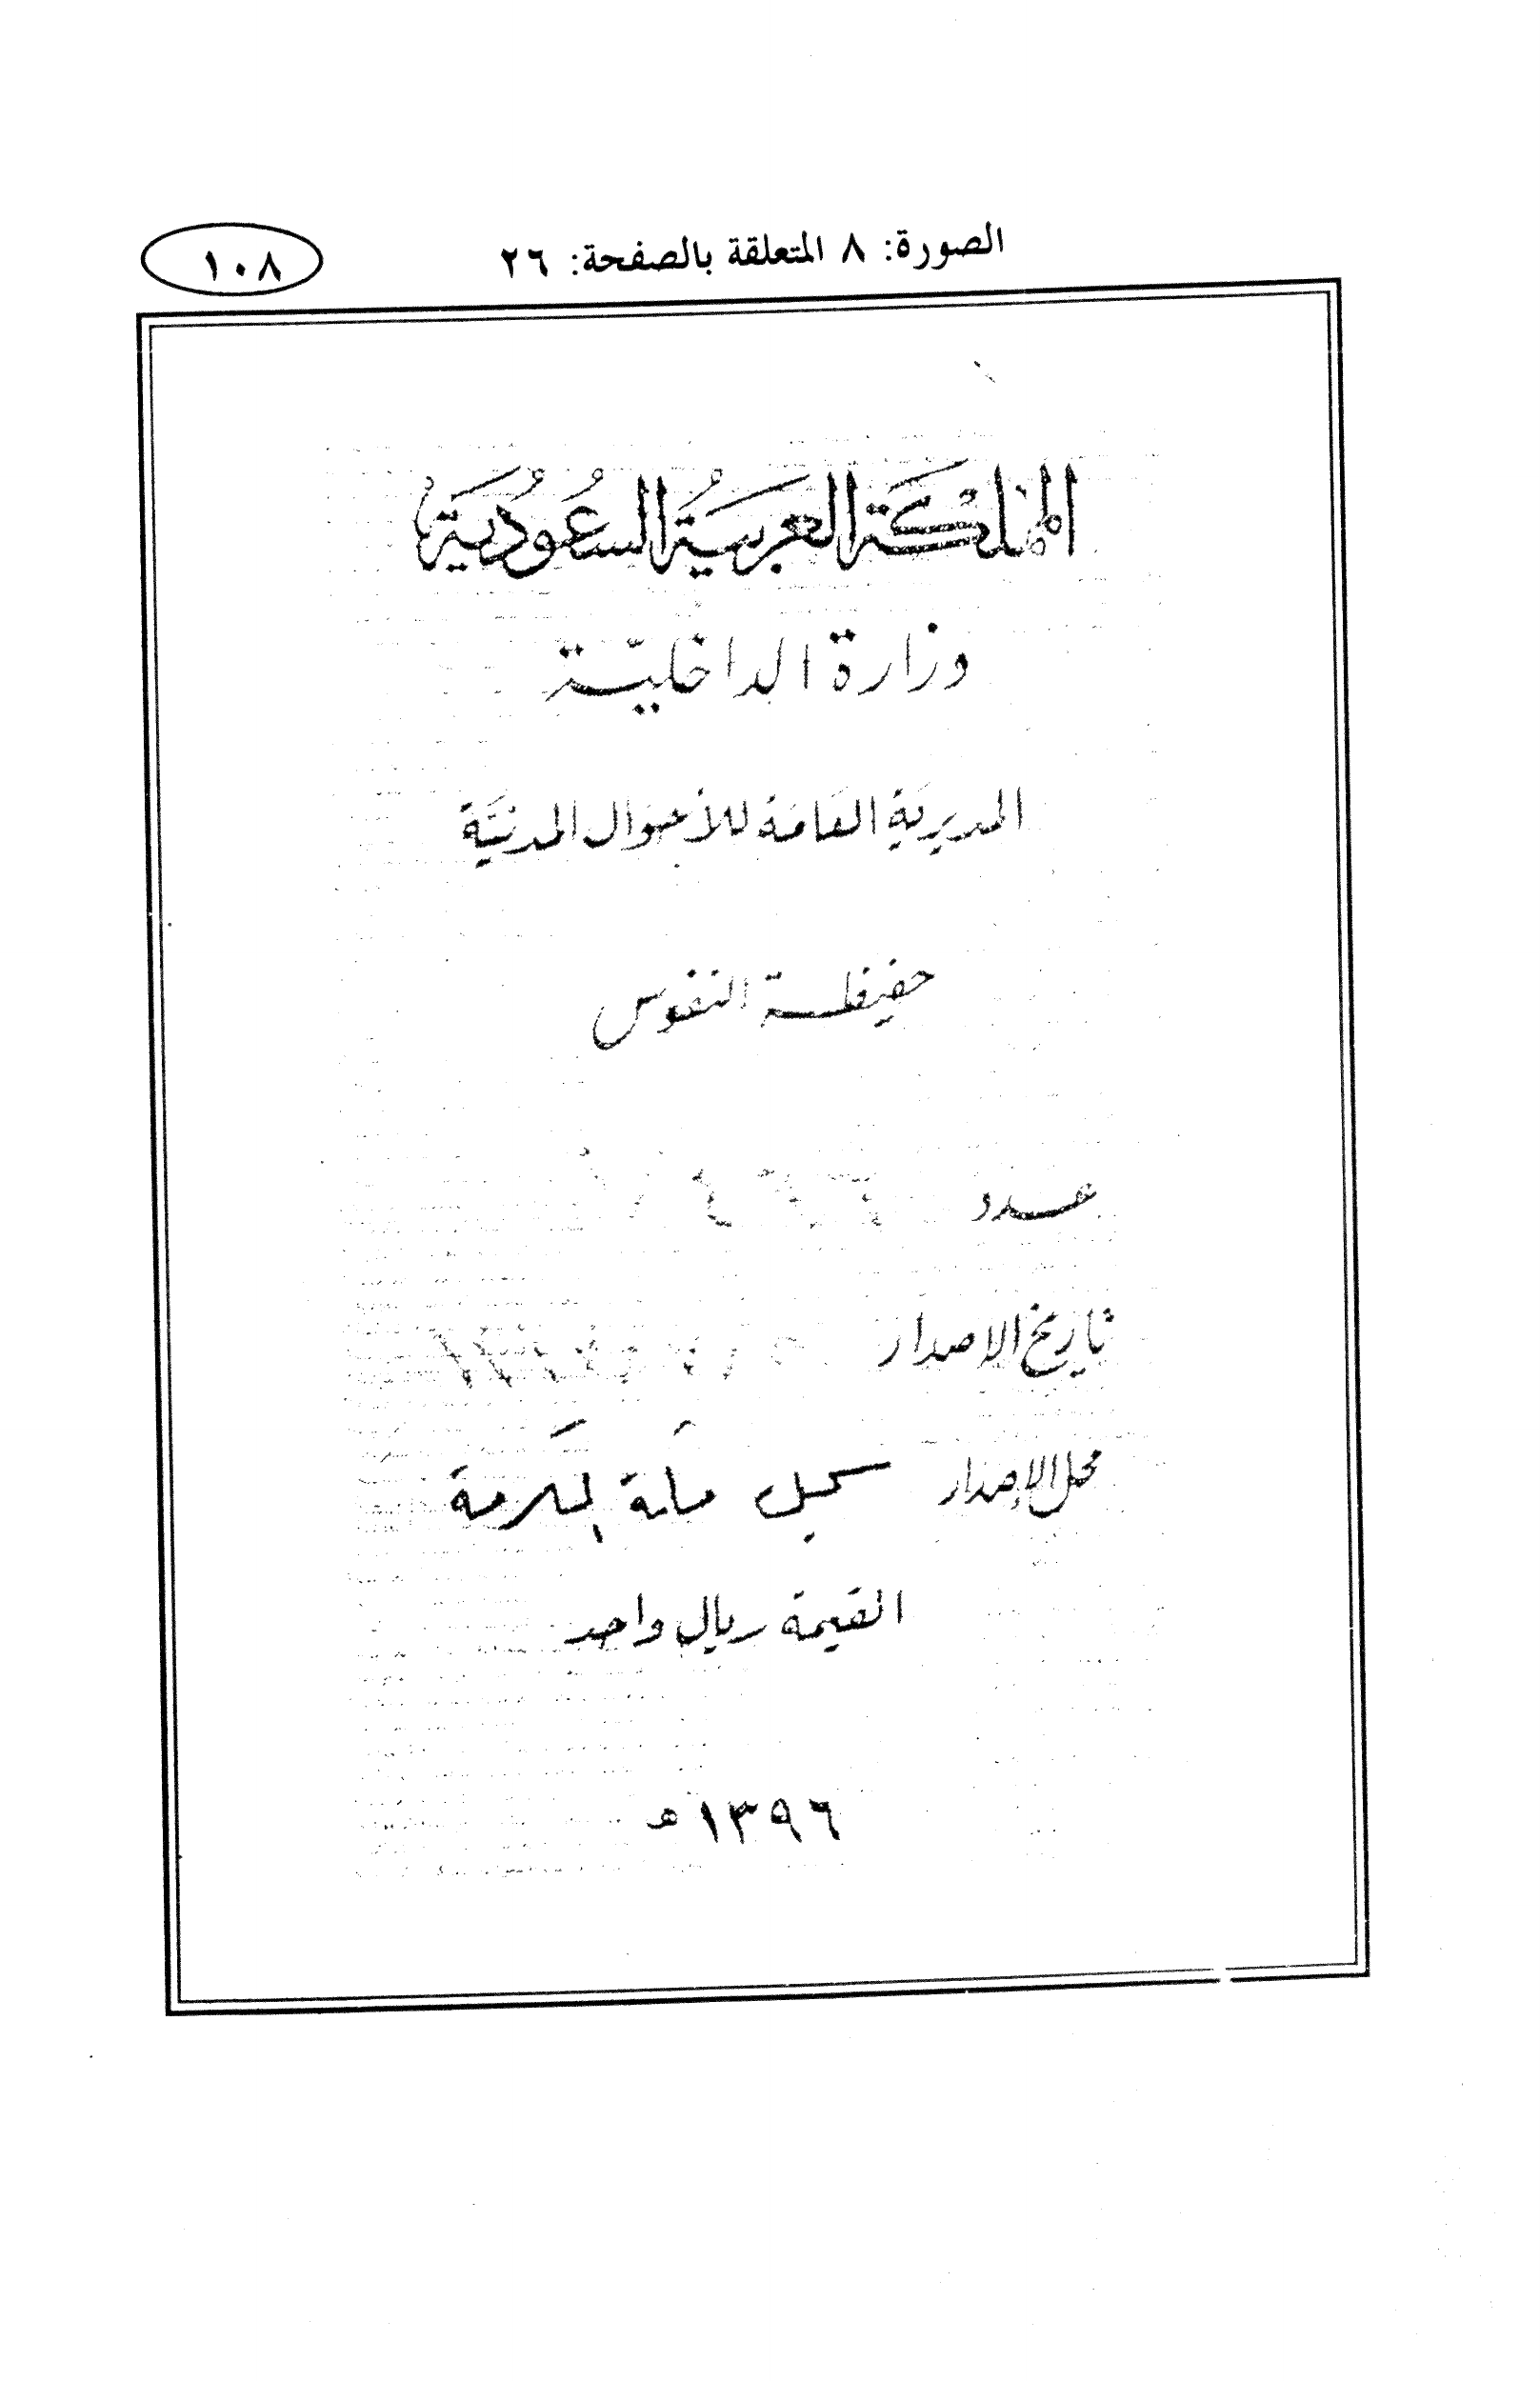 الصورة: ٨ المتعلقة بالصفحة: ٢٦
١٠٨
المملكة العربية السعودية
وزارة الداخلية
المديرية العامة للأحوال المدنية
حفيظة النفوس
عدد
تاريخ الاصدار
محل الإصدار سجل مكة المكرمة
القيمة ريال واحد
١٣٩٦ هـ